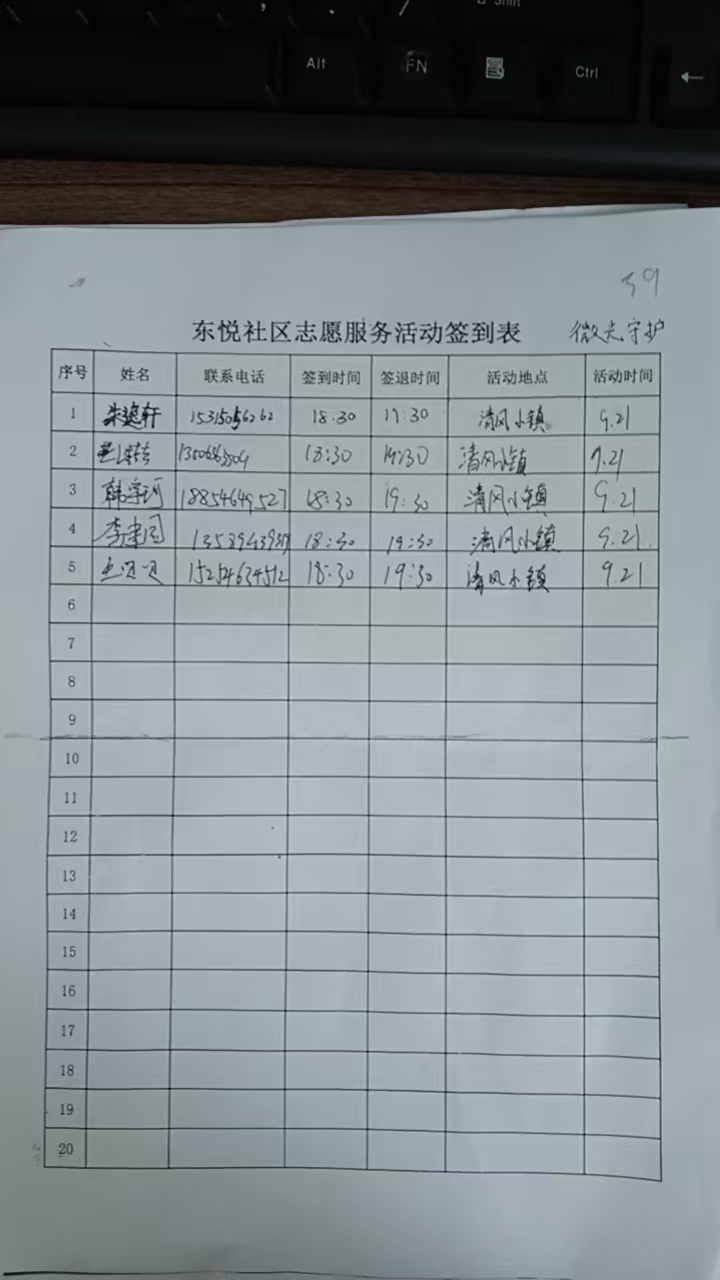 Shift
Alt FN Ctrl ←
39
东悦社区志愿服务活动签到表 微光守护
序号 姓名 联系电话 签到时间 签退时间 活动地点 活动时间
1 朱逸轩 15315056262 18:30 19:30 清风小镇 9.21
2 18:30 19:30 清风小镇 9.21
3 韩学珂 18854649527 18:30 19:30 清风小镇 9.21
4 李建国 18:30 19:30 清风小镇 9.21
5 18:30 19:30 清风小镇 9.21
6
7
8
9
10
11
12
13
14
15
16
17
18
19
20